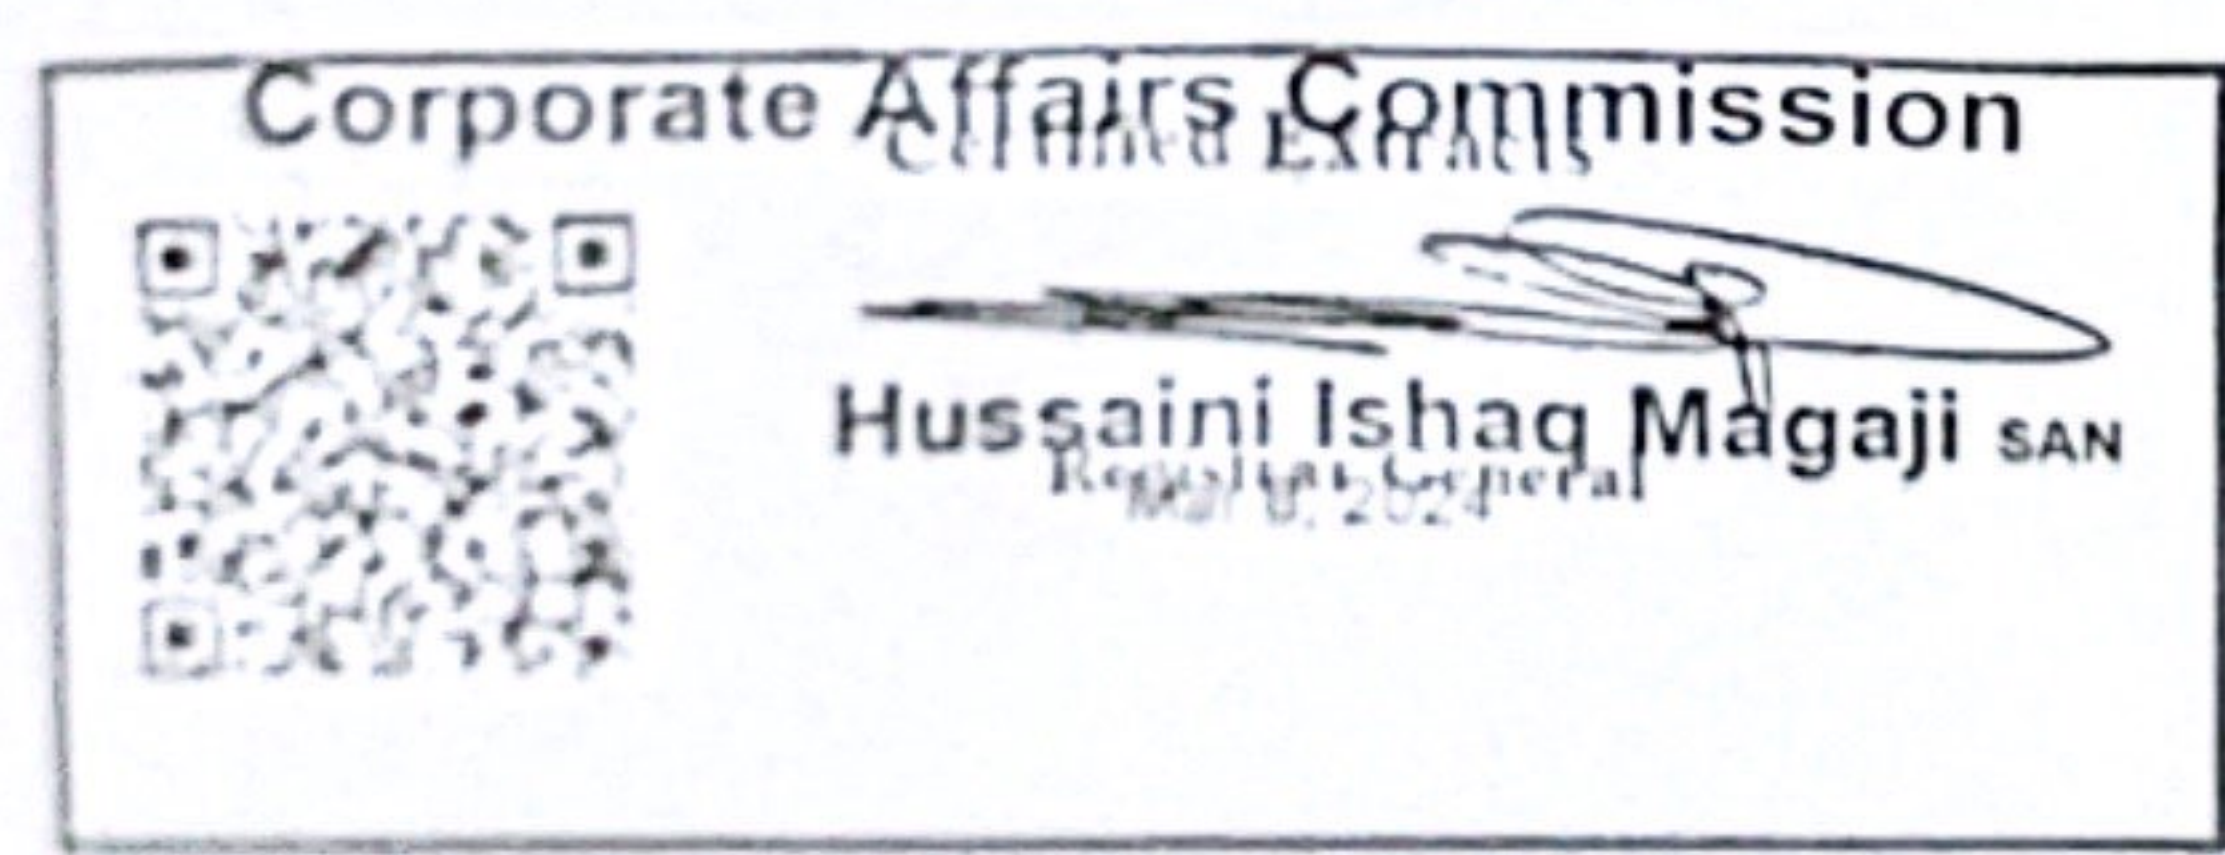 Corporate Affairs Commission
Certified Extracts
Hussaini Ishaq Magaji SAN
Registrar General
2024